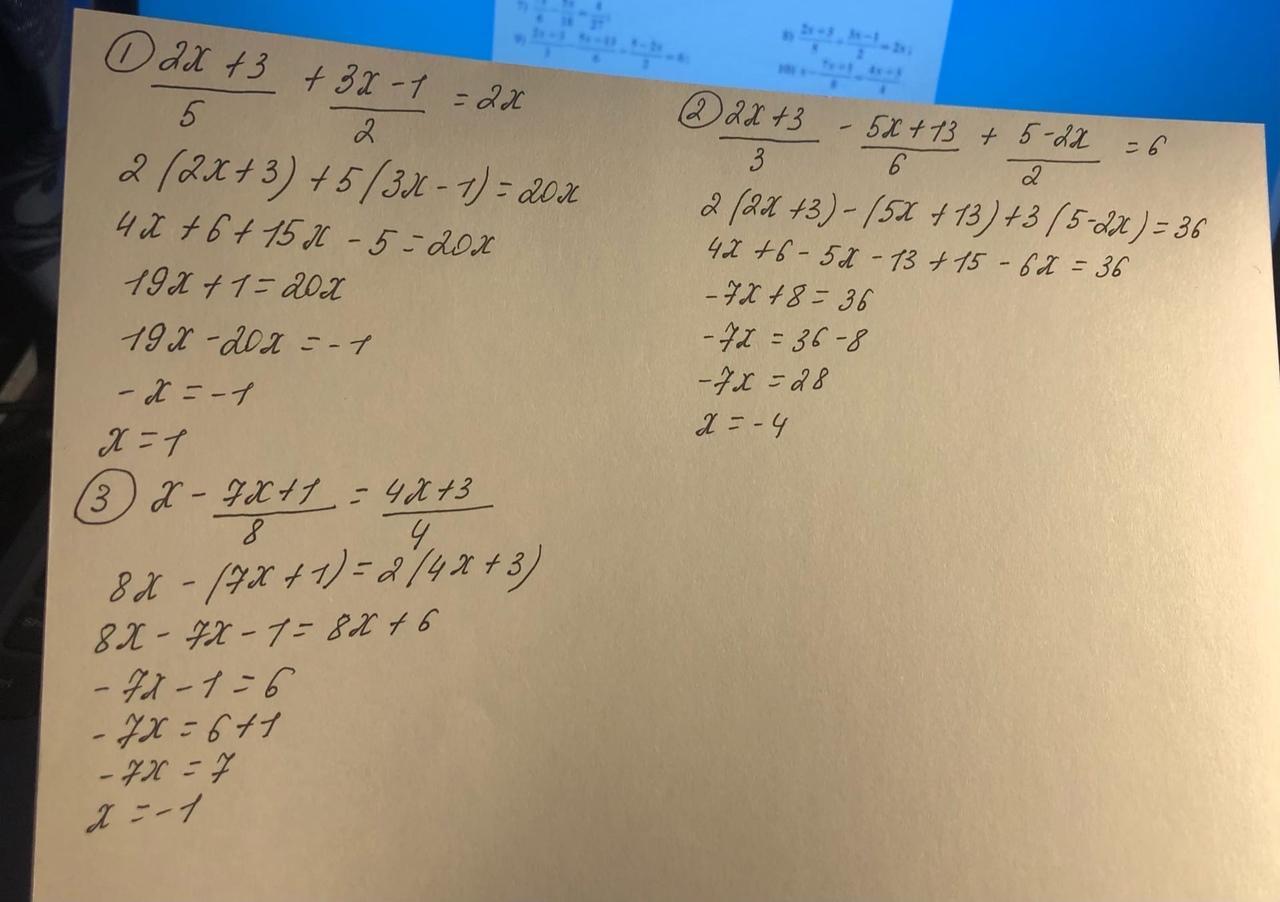 ① (2x+3)/5 + (3x-1)/2 = 2x
2(2x+3)+5(3x-1)=20x
4x+6+15x-5=20x
19x+1=20x
19x-20x=-1
-x=-1
x=1
② (2x+3)/3 - (5x+13)/6 + (5-2x)/2 = 6
2(2x+3)-(5x+13)+3(5-2x)=36
4x+6-5x-13+15-6x=36
-7x+8=36
-7x=36-8
-7x=28
x=-4
③ x - (7x+1)/8 = (4x+3)/4
8x-(7x+1)=2(4x+3)
8x-7x-1=8x+6
-7x-1=6
-7x=6+1
-7x=7
x=-1